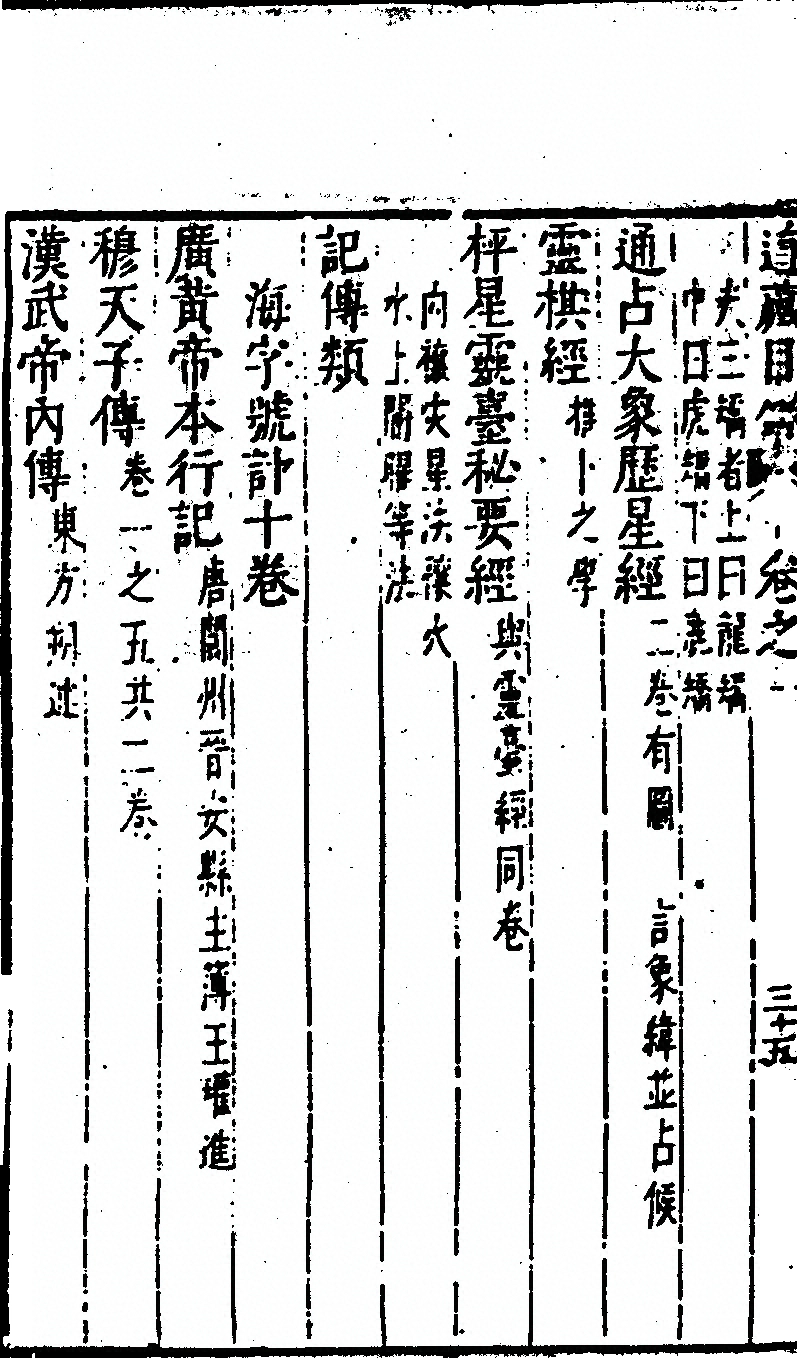 道藏目錄 卷之二
三十五
夫三矯者上曰龍矯
中曰虎矯下曰鹿矯
通占大象歷星經二卷有圖 言象緯並占候
靈棋經推卜之學
枰星靈臺秘要經與靈臺經同卷
內禳灾星法禳火
水上閣曜等法
記傳類
海字號計十卷
廣黃帝本行記唐閬州晉安縣主簿王瓘進
穆天子傳卷一之五共二卷
漢武帝內傳東方朔述